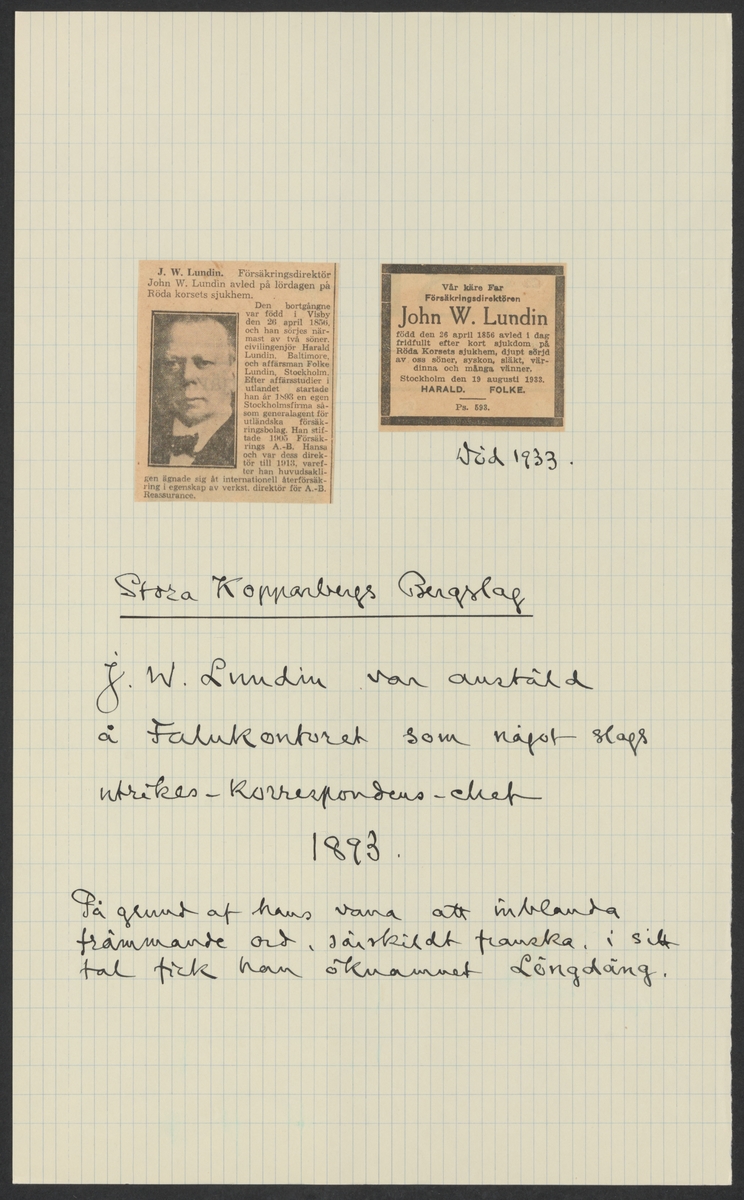 J. W. Lundin. Försäkringsdirektör
John W. Lundin avled på lördagen på
Röda korsets sjukhem.
Den bortgångne
var född i Visby
den 26 april 1856,
och han sörjes när-
mast av två söner,
civilingenjör Harald
Lundin, Baltimore,
och affärsman Folke
Lundin, Stockholm.
Efter affärsstudier i
utlandet startade
han år 1893 en egen
Stockholmsfirma så-
som generalagent för
utländska försäk-
ringsbolag. Han stif-
tade 1905 Försäk-
rings A.-B. Hansa
och var dess direk-
tör till 1913, varef-
ter han huvudsakli-
gen ägnade sig åt internationell återförsäk-
ring i egenskap av verkst. direktör för A.-B.
Reassurance.
Vår käre Far
Försäkringsdirektören
John W. Lundin
född den 26 april 1856 avled i dag
fridfullt efter kort sjukdom på
Röda Korsets sjukhem, djupt sörjd
av oss söner, syskon, släkt, vär-
dinna och många vänner.
Stockholm den 19 augusti 1933.
HARALD. FOLKE.
Ps. 593.
Död 1933.
Stora Kopparbergs Bergslag
J. W. Lundin var anstäld
å Falukontoret som något slags
utrikes-korrespondens-chef
1893.
På grund af hans vana att inblanda
främmande ord, särskildt franska, i sitt
tal fick han öknamnet Löngdäng.